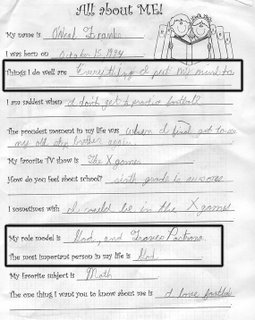 All about ME!
My name is
I was born on October 15, 1994
Things I do well are Everything I put my mind to
I am saddest when I don't get to practice football
The proudest moment in my life was when I got to see
my old step brother again.
My favorite TV show is The X games
How do you feel about school? sixth grade is awesome
I sometimes wish I could be in the X games
My role model is Dad, and Travis Pastrana
The most important person in my life is Dad
My favorite subject is Math
The one thing I want you to know about me is I love football